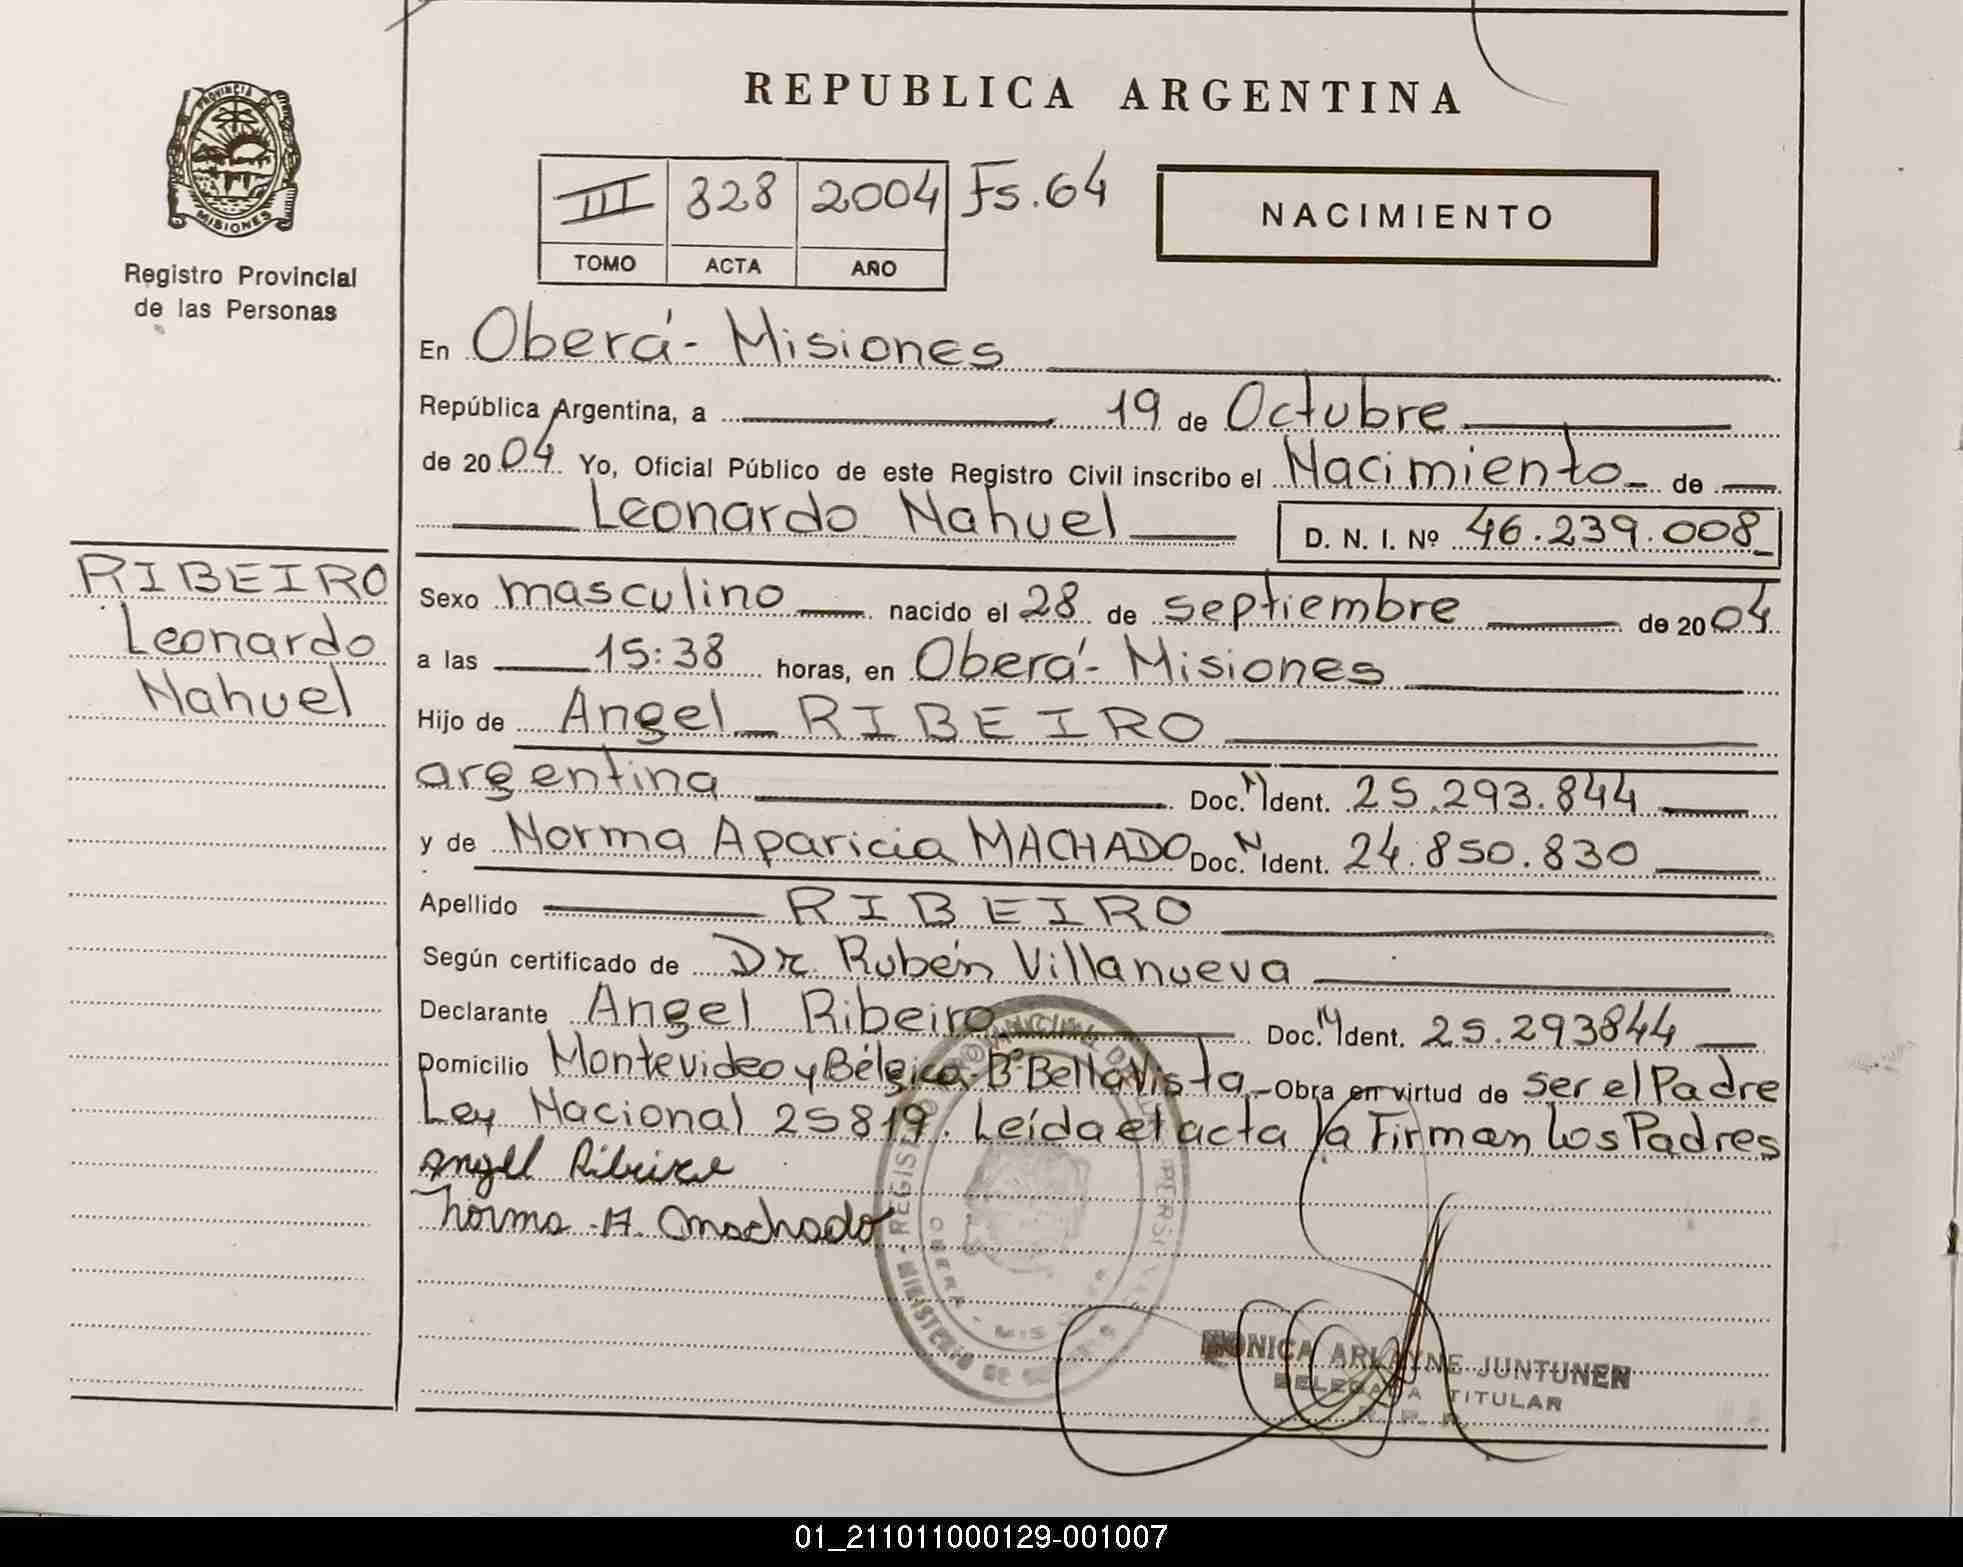 REPUBLICA ARGENTINA
PROVINCIA DE
MISIONES
Registro Provincial
de las Personas
III 828 2004 Fs. 64
TOMO ACTA AÑO
NACIMIENTO
En Oberá - Misiones
República Argentina, a 19 de Octubre
de 2004 Yo, Oficial Público de este Registro Civil inscribo el Nacimiento de
Leonardo Nahuel D. N. I. Nº 46.239.008
RIBEIRO
Leonardo
Nahuel
Sexo masculino nacido el 28 de septiembre de 2004
a las 15:38 horas, en Oberá - Misiones
Hijo de Angel RIBEIRO
argentina Doc. N Ident. 25.293.844
y de Norma Aparicia MACHADO Doc. N Ident. 24.850.830
Apellido RIBEIRO
Según certificado de Dr. Rubén Villanueva
Declarante Angel Ribeiro Doc. N Ident. 25.293844
Domicilio Montevideo y Bélgica - Bº Bella Vista - Obra en virtud de ser el Padre
Ley Nacional 25819. Leída el acta la Firman los Padres
Angel Ribeiro
Norma A. Machado
REGISTRO PROVINCIAL DE
MINISTERIO DE
OBERA - MIS
MONICA ARLAYNE JUNTUNEN
DELEGADA TITULAR
R. P. P.
01_211011000129-001007